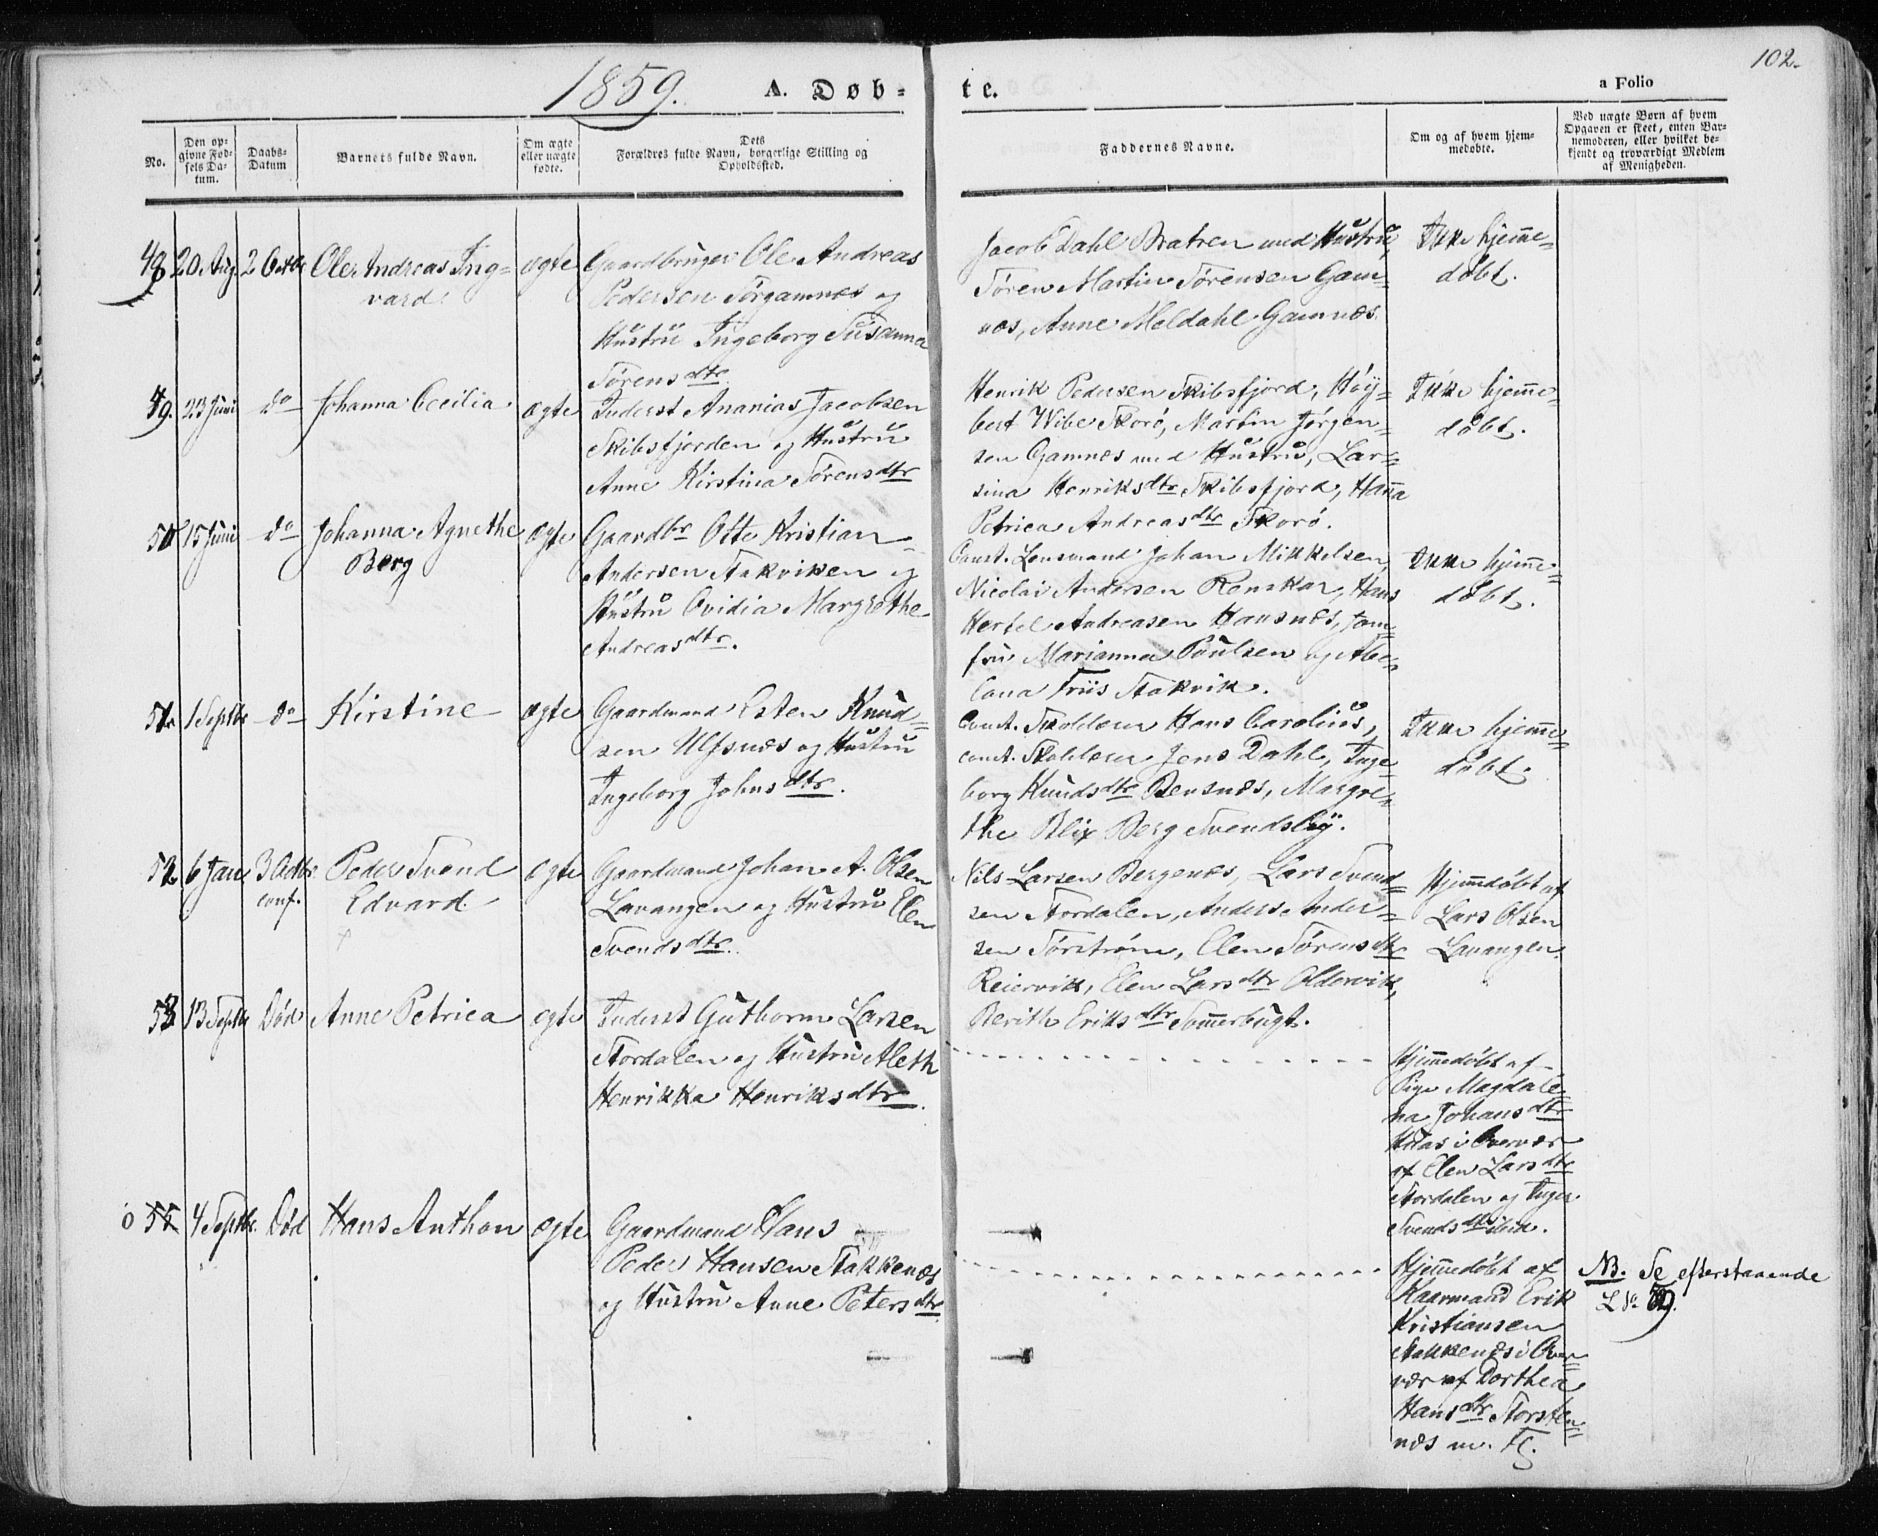 102.
1859. A. Døb- te. a Folio
No.
Den op-
givne Fød-
sels Da-
tum.
Daabs-
Datum
Barnets fulde Navn.
Om ægte
eller uægte
fødte.
Dets
Forældres fulde Navn, borgerlige Stilling og
Opholdssted.
Faddernes Navne.
Om og af hvem hjem-
medøbte.
Ved uægte Børn af hvem
Opgaven er skeet, enten Bar-
nemoderen, eller hvilket be-
kjendt og troværdigt Medlem
af Menigheden.
48. 20 Aug. 2 Octbr Ole Andreas Ing-
vard.
ægte
Gaardbruger Ole Andreas
Pedersen Sørgamnæs og
Hustru Ingeborg Susanna
Sørensdtr
Jacob Dahl Bratren med Hustru,
Søren Martin Sørensen Gam-
næs, Anne Meldahl Gamnæs.
Ikke hjemme-
døbt.
49. 23 Juni do Johanna Cecilia. ægte
Inderst Ananias Jacobsen
Skibsfjorden og Hustru
Anne Kirstina Sørensdtr
Henrik Pedersen Skibsfjord, Høy-
bert Wibe Skorø, Martin Jørgen-
sen Gamnæs med Hustru, Lar-
sina Henriksdtr Skibsfjord, Hanna
Petrica Andreasdtr Skorø.
Ikke hjemme-
døbt.
50 15 Juni do Johanna Agnethe
Berg
ægte
Gaardbr Otto Kristian
Andersen Stakviken og
Hustru Ovidia Margrethe
Andreasdtr.
Const. Lensmand Johan Mikkelsen,
Nicolai Andersen Renskar, Hans
Hertel Andreasen Hansnæs, Jom-
fru Marianna Paulsen og Abe-
lona Friis Stakvik.
Ikke hjemme-
døbt.
51. 1 Septbr do Kirstine ægte
Gaardmand Esten Knud-
sen Ulfsnæs og Hustru
Ingeborg Johnsdtr.
Const. Skolelærer Hans Carolius,
const. Skolelærer Jens Dahl, Inge-
borg Knudsdtr Bensnæs, Margre-
the Blix Berg Svendsby.
Ikke hjemme-
døbt.
52. 6 Jan 3 Octbr.
conf.
Peder Svend
Edvard.
ægte
Gaardmand Johan A. Olsen
Lavangen og Hustru Elen
Svendsdtr.
Nils Larsen Bergenæs, Lars Svend-
sen Stordalen, Anders Ander-
sen Sørstrøm, Elen Sørensdtr
Reiervik, Elen Larsdtr Oldervik,
Berith Eriksdtr Sommerbugt.
Hjemmedøbt af
Lars Olsen
Lavangen.
53 13 Septbr Død Anne Petrica ægte
Inderst Guthorm Larsen
Stordalen og Hustru Aleth
Henrikka Henriksdtr.
Hjemmedøbt af
Pige Magdale-
na Johansdtr
i Overvær
af Elen Larsdtr
Stordalen og Inger
Svendsdtr ibid.
o 55 4 Septbr. Død Hans Anthon ægte
Gaardmand Hans
Peder Hansen Stakkenæs
og Hustru Anne Petersdtr.
Hjemmedøbt af
Kaarmand Erik
Kristiansen
Stakkenæs i Over-
vær af Dorthea
Hansdtr Storsten-
næs m. Fl.
NB. Se efterstaaende
L No 59.